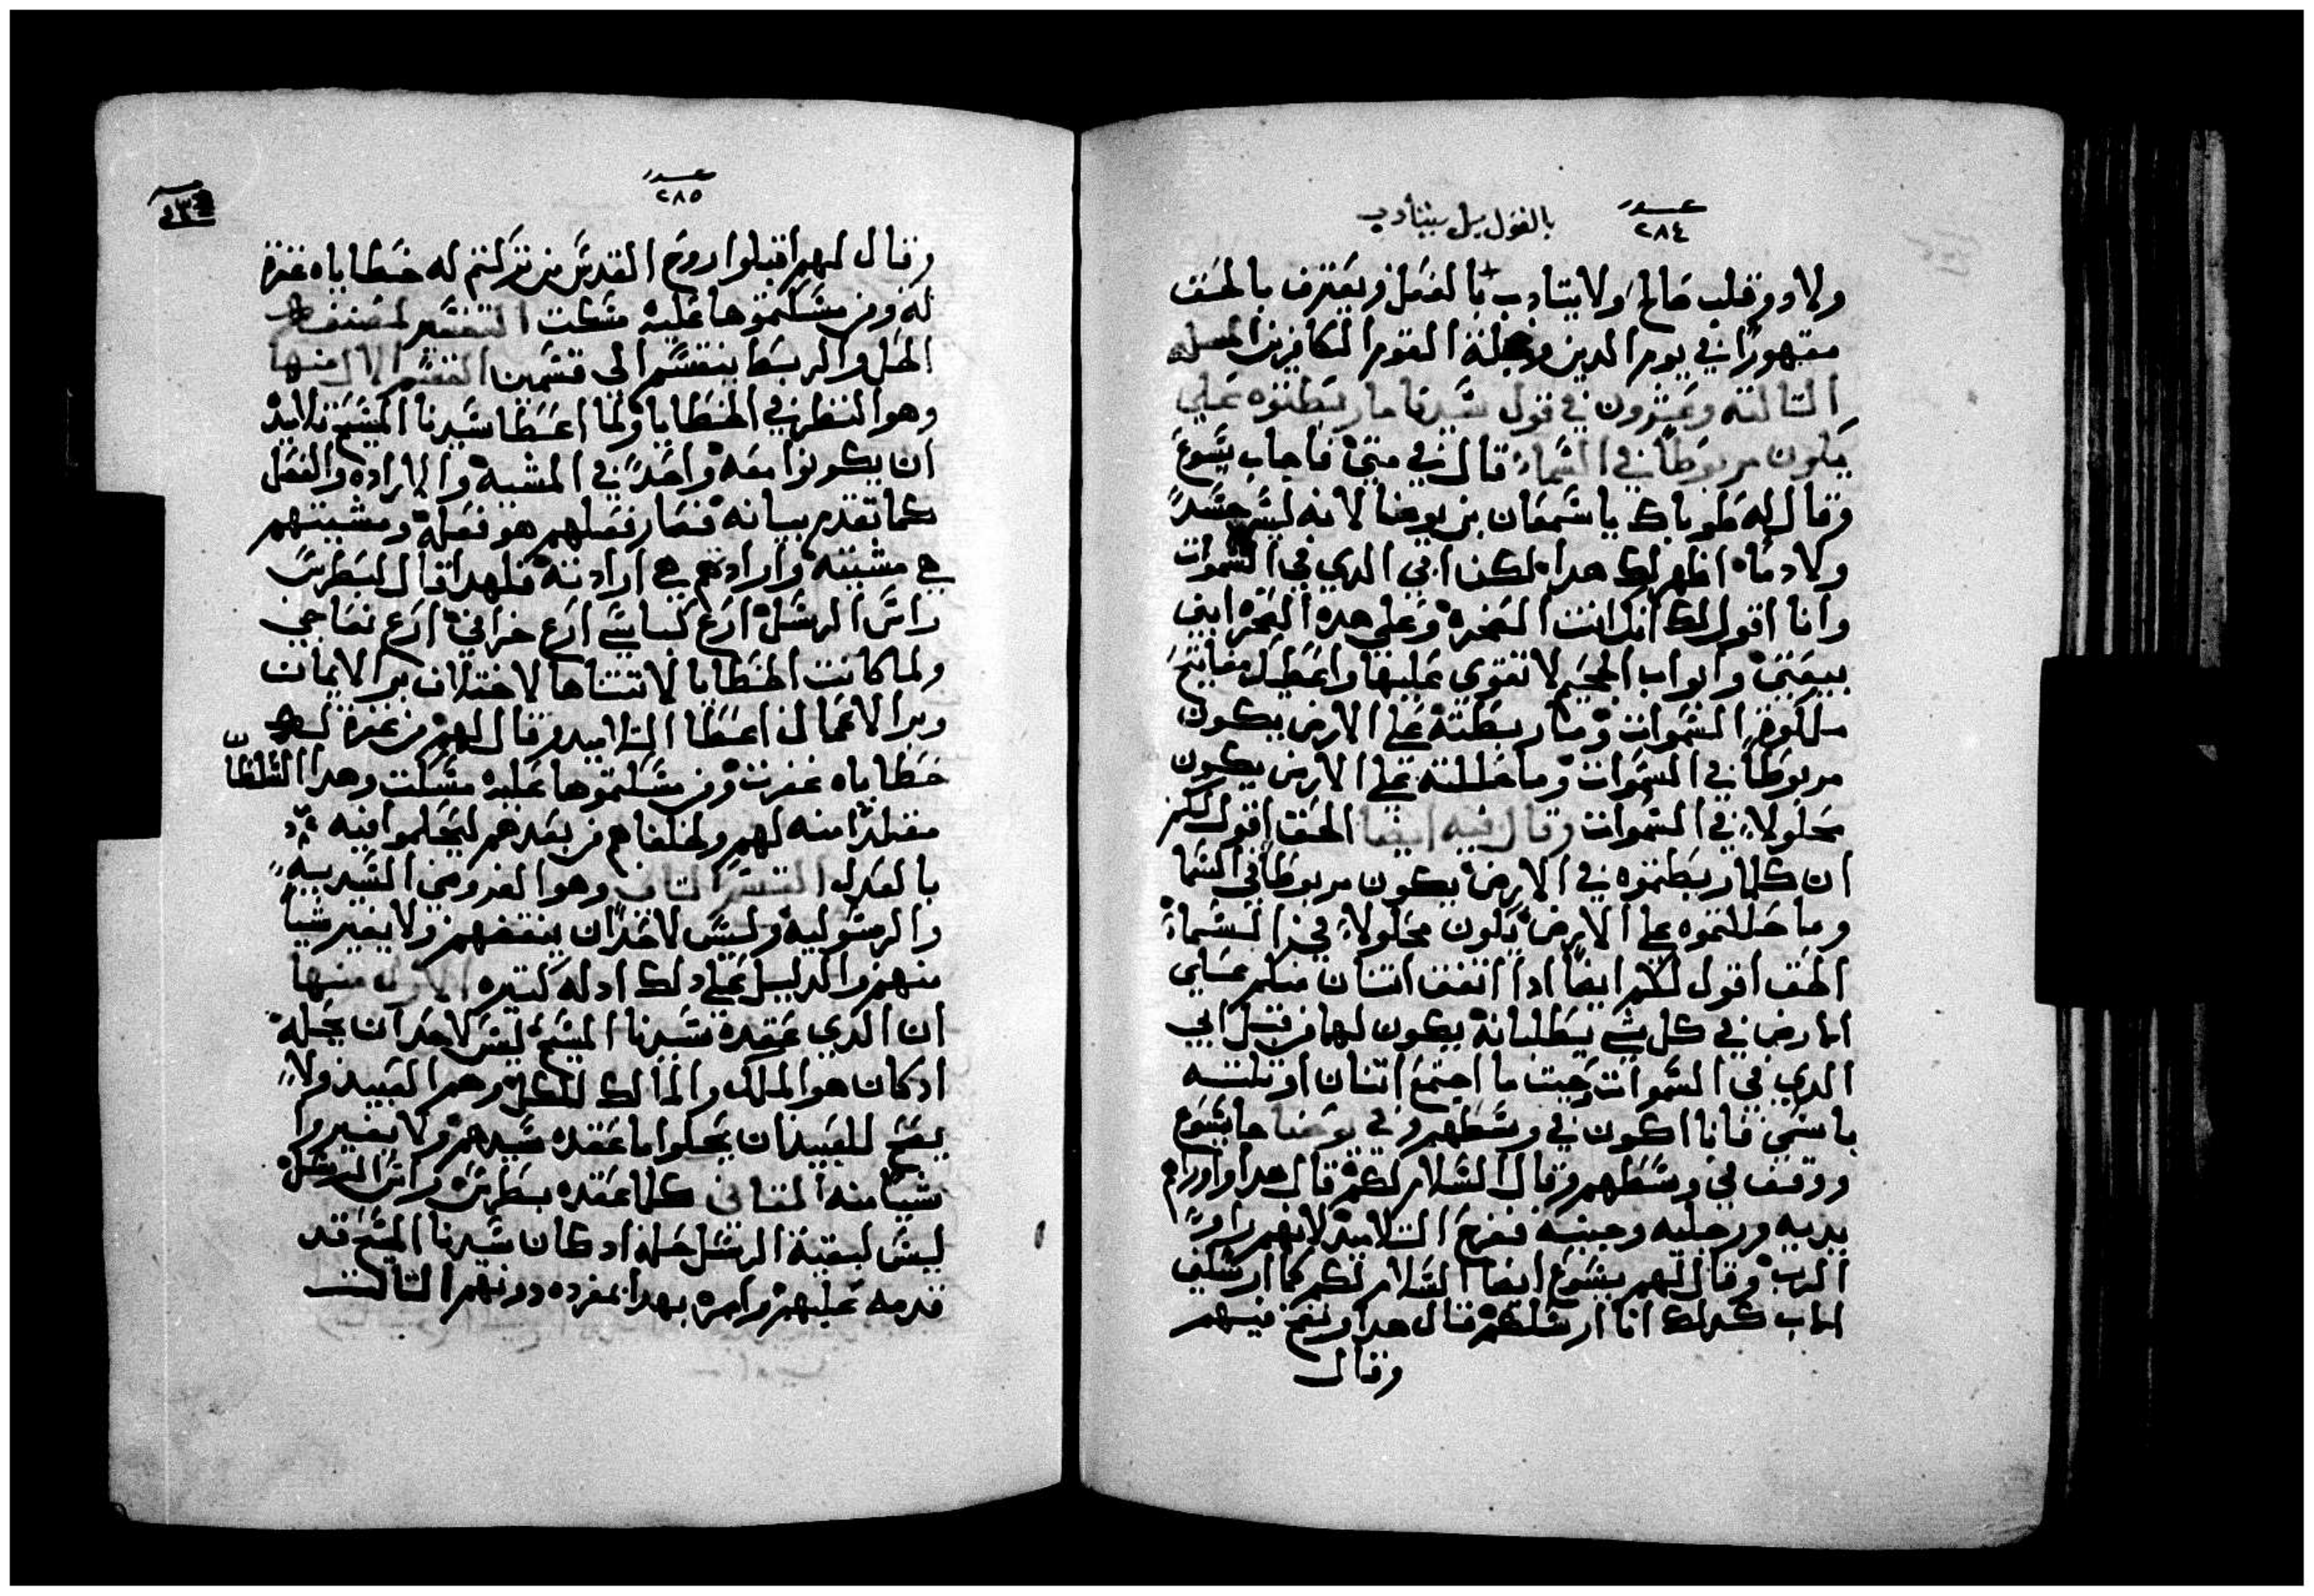 عدد
٢٨٤
بالقول بل يتأدب
ولا دو قلب صالح ولا يتادب بالفعل ويعترف بالحق
مقهورًا في يوم الدين وجملة القوم الكافرين المسله
التالته وعشرون في قول سيدنا ما ربطتوه علي
يكون مربوطًا في السماء قال في متي فاجاب يسوع
وقال له طوباك يا سمعان بن يونا لانه ليس جسدًا
ولا دمًا اظهر لك هدا لكن ابي الدي في السموات
وانا اقول لك انك انت الصخره وعلي هده الصخره ابني
بيعتي وابواب الجحيم لا تقوي عليها واعطيك مفاتيح
ملكوت السموات وما ربطته علي الارض يكون
مربوطًا في السموات وما حللته علي الارض يكون
محلولاً في السموات وقال فيه ايضا الحق اقول لكم
ان كلما ربطتموه في الارض يكون مربوطًا في السما
وما حللتموه علي الارض يكون محلولاً في السماء
الحق اقول لكم ايضًا ادا اتفق اتنان منكم علي
الارض في كل شي يطلبانه يكون لهما من قبل ابي
الدي في السموات وحيت ما اجتمع اتنان او تلته
باسمي فانا اكون في وسطهم وفي يوحنا جا يسوع
ووقف في وسطهم وقال السلام لكم قال هدا واوراهم
يديه ورجليه وجنبه ففرح التلاميد لانهم راوا
الرب وقال لهم يسوع ايضا السلام لكم كما ارسلني
الاب كدلك انا ارسلكم قال هدا ونفخ فيهم
وقال
عدد
٢٨٥
وقال لهم اقبلوا روح القدس من تركتم له خطاياه غفرة
له ومن مسكتموها عليه مسكت التفسير
الحل والربط ينقسم الي قسمين القسم الاول منها
وهو النظر في الخطايا ولما اعطا سيدنا المسيح تلاميد
ان يكونوا معه واحدًا في المشيه والاراده والفعل
كما تقدم بيانه فصار فعلهم هو فعله ومشيتهم
هي مشيته وارادتهم هي ارادته فلهدا قال لبطرس
راس الرسل ارع كباشي ارع خرافي ارع نعاجي
ولما كانت الخطايا لا تتناها لاختلاف بر الايمان
وبر الاعمال اعطا التلاميد وقال لهم من غفرة له
خطاياه غفرت ومن مسكتموها عليه مسكت وهدا السلطان
منه لهم ولخلفاهم من بعدهم ليحكموا فيه
بالعدل القسم التاني وهو الفروض السيديه
والرسوليه وليس لاحدًا ان ينقضهم ولا يغير شيًا
منهم والدليل علي دلك ادله كتيره الاول منها
ان الدي عقده سيدنا المسيح ليس لاحد ان يحله
ادكان هو الملك والمالك للكل وهم العبيد ولا
يصح للعبيد ان يحلوا ما عقده سيدهم ولا يغيروا
شيًا منه التاني كلما عقده بطرس راس الرسل
ليس لبقية الرسل حله اد كان سيدنا المسيح قد
قدمه عليهم وامره بهدا بمفرده دونهم التالت